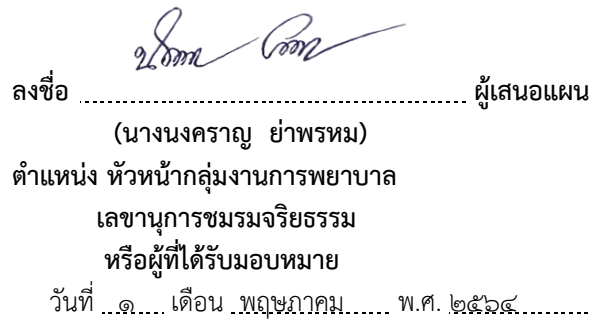 ลงชื่อ ผู้เสนอแผน
(นางนงคราญ ย่าพรหม)
ตำแหน่ง หัวหน้ากลุ่มงานการพยาบาล
เลขานุการชมรมจริยธรรม
หรือผู้ที่ได้รับมอบหมาย
วันที่ ๑ เดือน พฤษภาคม พ.ศ. ๒๕๖๔